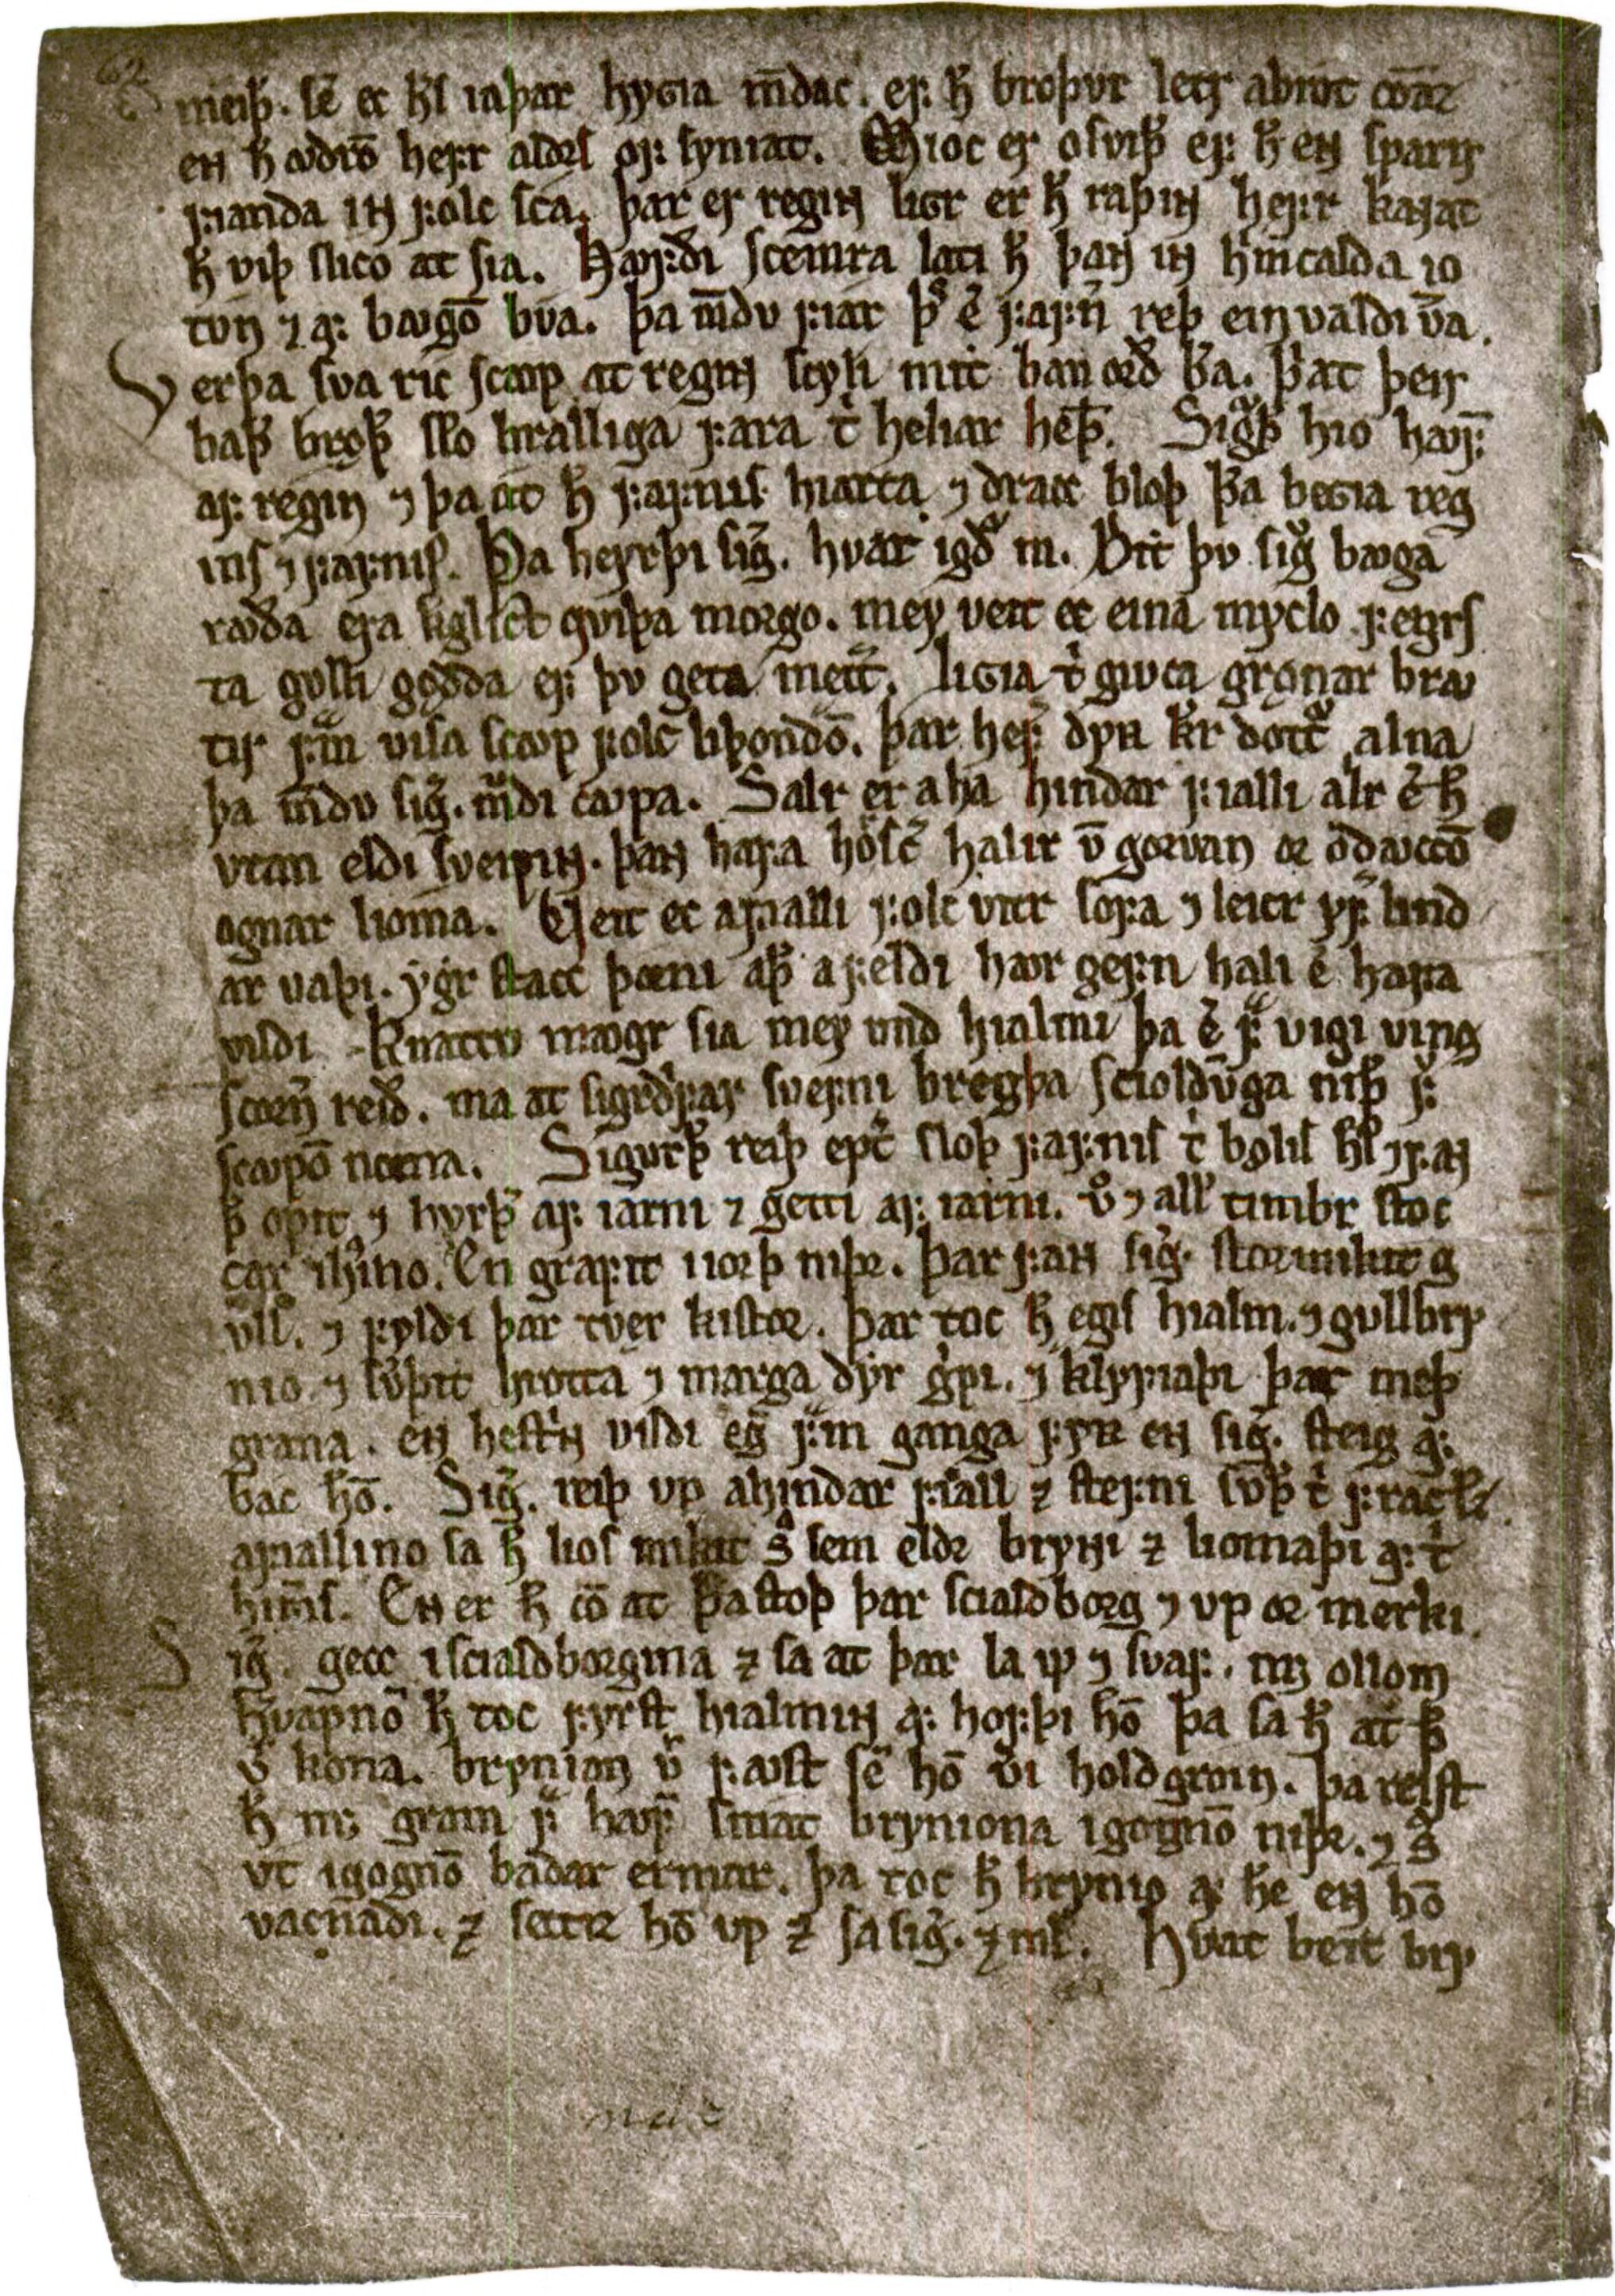 62
meiþ. sē ec h̅s iaþar hyɢia mv̄dac. ef h̅ broþvr letr abrꜹt comaz
en h̅ ꜹdrō hefr aldrs of syniat. Mioc er osviþr ef h̅ en sparir
fianda in folc scá. þar er regin liɢr er h̅ raþin hefr kanat
h̅ viþ slico at sia. Hꜹfði scemra láti h̅ þan in hrimcalda io
tvn ⁊ af bꜹgō búa. þa mv̄dv fiár þess er fafnir reþ einvaldi vera.
Verþa sva ríc scꜹp at regin scyli mitt ban orð bera. þvi at þeir
baþir brøþr scolo bralliga fara til heliar heþan. Sigvrþr hio hꜹfvþ
af regin ⁊ þa át h̅ fafnis hiarta ⁊ dracc bloþ þeira beɢia reg
ins ⁊ fafnis. Þa heyrþi sig̅. hvar igðor m. Bitt þv sigvrðr bꜹga
rꜹða era kgl̅ict qviþa morgo. mey veit ec eina myclo fegrs
ta gvlli gǫdda ef þv geta mettir. Liɢia til givca grǫnar brꜹ
tir fram visa scꜹp folc liþondō. þar hefir dýrr kr dottvr alna
þa mv̄dv sig̅. mvndi cꜹpa. Salr er a há hindar fialli allr er h̅
vtan eldi sveipin. þan hafa horscir halir v̄ gorvan or odꜹccō
ognar lioma. Veit ec afialli folc vitr sofa ⁊ leicr yfir lind
ar váþi. yɢr stacc þorni aþra feldi hꜹr gefn hali er hafa
vildi. Knattv mꜹgr sia mey vnd hialmi þa er frá vigi ving
scorni reið. ma at sigrdrifar svefni bregþa sciolðv̄ga niþr fyr
scꜹpō norna. Sigvrþr reiþ eptir sloþ fafnis til bǫlis h̅s ⁊ fan
þat opit ⁊ hvrþir af iarni ⁊ getti af iarni. voro ⁊ allir timbr stoc
car ihvsino. En grafit i iorþ niþr. þar fan sig̅. stormikit g
vll. ⁊ fyldi þar tver kistor. þar toc h̅ egis hialm. ⁊ gvllbry
nio. ⁊ sverþit hrotta ⁊ marga dýr gripi. ⁊ klyfiaþi þar meþ
grana. en hestrin vildi eigi fram ganga fyrr en sig̅. steig a
bac hō. Sig̅. reiþ vp ahindar fiall ⁊ stefni svþr til fraclz
afiallino sa h̅ lios mikit sva sem eldr brynni ⁊ liomaþi af til
himins. En er h̅ cō at þa stoþ þar scialdborg ⁊ vp or merki.
Sig̅. gecc iscialdborgina ⁊ sa at þar la maþr ⁊ svaf. meþ ollom
hervapnō h̅ toc fyrst hialmin af hofþi hō þa sa h̅ at þat
var kona. brynian var fꜹst sē hō veri holdgroin. þa reist
h̅ meþ gram frá hꜹfvþ smát bryniona igognō niþr. ⁊ sva
vt igognō báðar ermar. þa toc h̅ brynio af hē en hō
vacnaði. ⁊ settiz hō vp ⁊ sa sig̅. ⁊ ml̅. Hvat beit bry